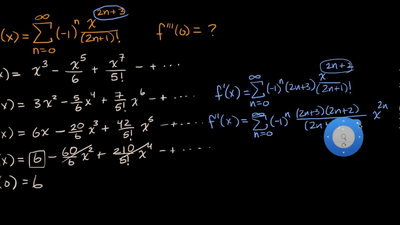 (x) = ∑_{n=0}^{∞} (-1)^n x^{2n+3}/(2n+1)! f'''(0) = ?
x) = x^3 - x^5/6 + x^7/5! - + ····
x) = 3x^2 - 5/6 x^4 + 7/5! x^6 - + ····
x) = 6x - 20/6 x^3 + 42/5! x^5 - + ····
(x) = 6 - 60/6 x^2 + 210/5! x^4 - + ·····
(0) = 6
f'(x) = ∑_{n=0}^{∞} (-1)^n (2n+3) x^{2n+2}
f''(x) = ∑_{n=0}^{∞} (-1)^n (2n+3)(2n+2)/(2n x^{2n